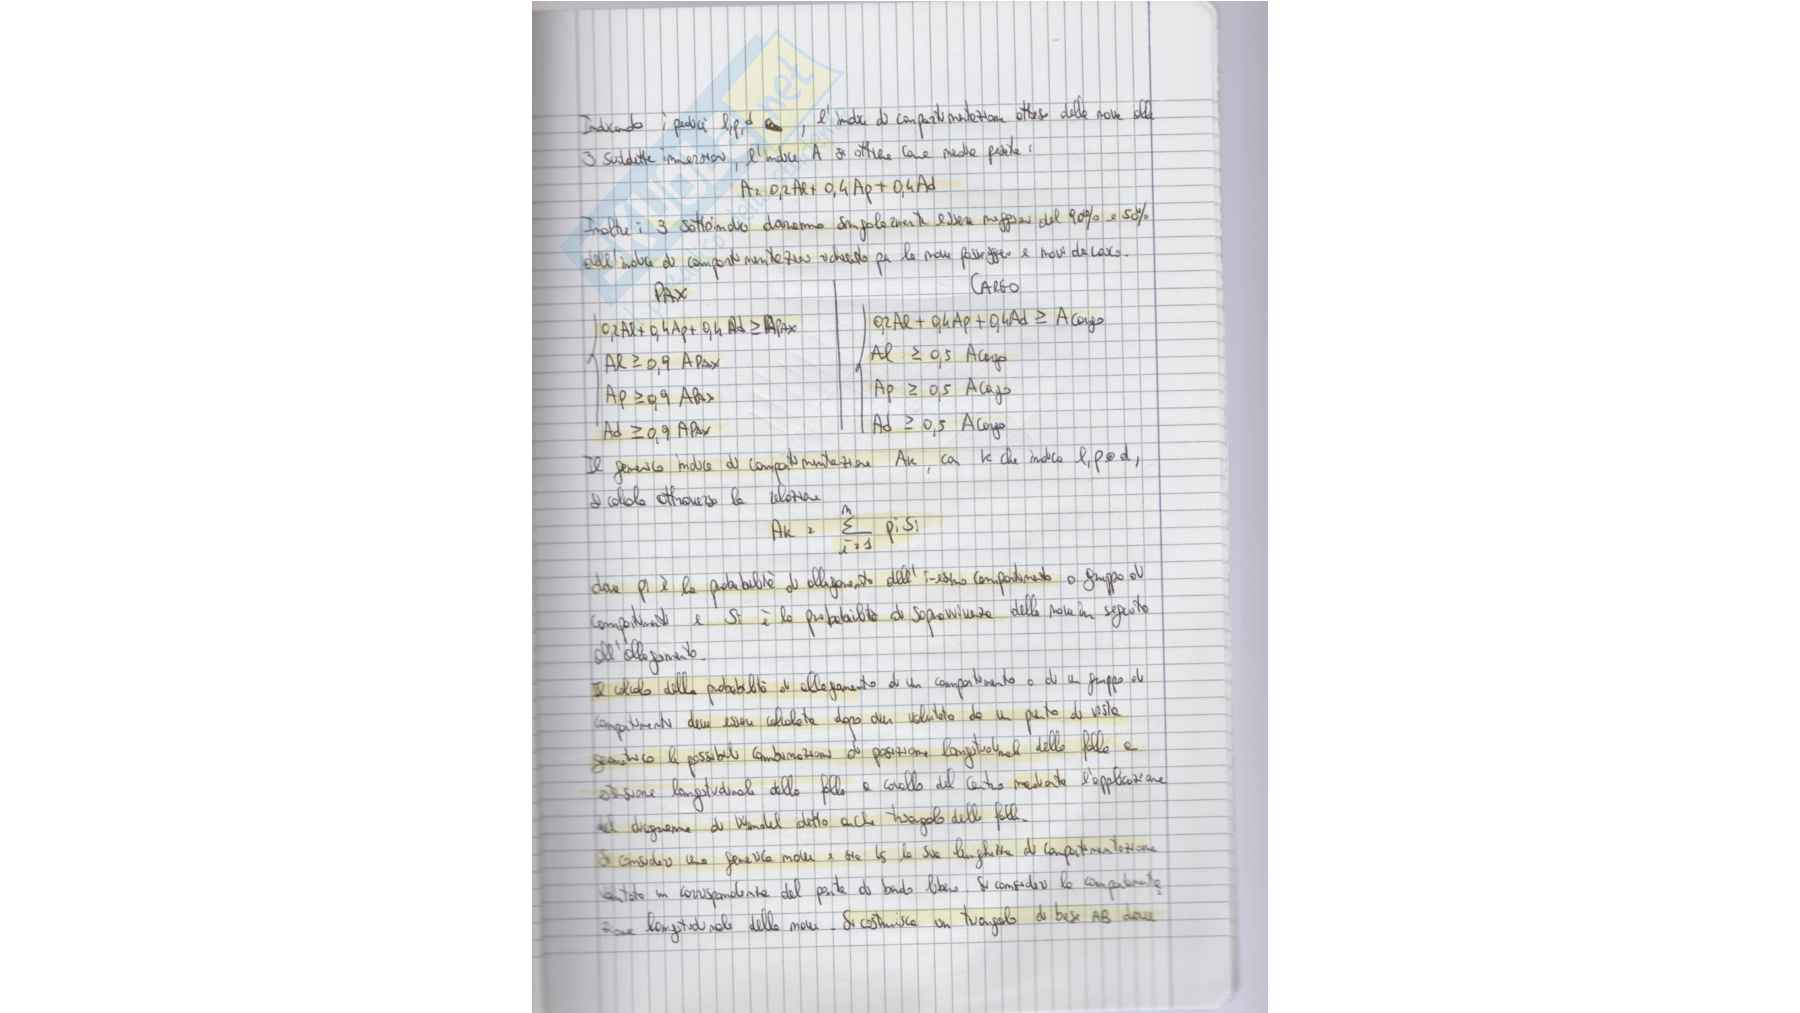 Indicando i pedici l, p, d, l'indice di compartimentazione atteso della nave alle
3 suddette immersioni, l'indice A si ottiene come media pesata:
A = 0,2Al + 0,4Ap + 0,4Ad
Inoltre i 3 sottoindici dovranno singolarmente essere maggiori del 90% e 50%
dell'indice di compartimentazione richiesto per le navi passeggeri e navi da carico.
PAX
CARGO
0,2Al + 0,4Ap + 0,4Ad ≥ APAX
0,2Al + 0,4Ap + 0,4Ad ≥ ACargo
Al ≥ 0,9 APAX
Al ≥ 0,5 ACargo
Ap ≥ 0,9 APAX
Ap ≥ 0,5 ACargo
Ad ≥ 0,9 APAX
Ad ≥ 0,5 ACargo
Il generico indice di compartimentazione Ak, con k che indica l, p e d,
si calcola attraverso la relazione
Ak = Σ pi si
n
i=1
dove pi è la probabilità di allagamento dell'i-esimo compartimento o gruppo di
compartimenti e Si è la probabilità di sopravvivenza della nave in seguito
all'allagamento.
Il calcolo della probabilità di allagamento di un compartimento o di un gruppo di
compartimenti deve essere calcolata dopo aver valutato da un punto di vista
geometrico le possibili combinazioni di posizione longitudinale della falla e
estensione longitudinale della falla a cavallo del centro mediante l'applicazione
del diagramma di Wendel detto anche triangolo delle falle.
Si consideri una generica nave e sia Ls la sua lunghezza di compartimentazione
valutata in corrispondenza del ponte di bordo libero. Si consideri la compartimenta
zione longitudinale della nave. Si costruisca un triangolo di base AB dove